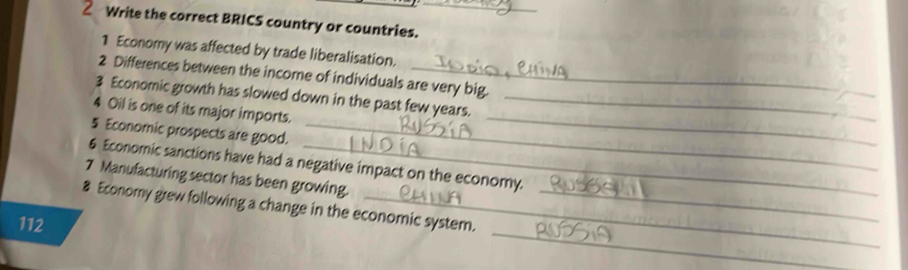 2 Write the correct BRICS country or countries.
1 Economy was affected by trade liberalisation. INDIA, CHINA
2 Differences between the income of individuals are very big.
3 Economic growth has slowed down in the past few years.
4 Oil is one of its major imports. RUSSIA
5 Economic prospects are good. INDIA
6 Economic sanctions have had a negative impact on the economy.
7 Manufacturing sector has been growing. CHINA
8 Economy grew following a change in the economic system. RUSSIA
112